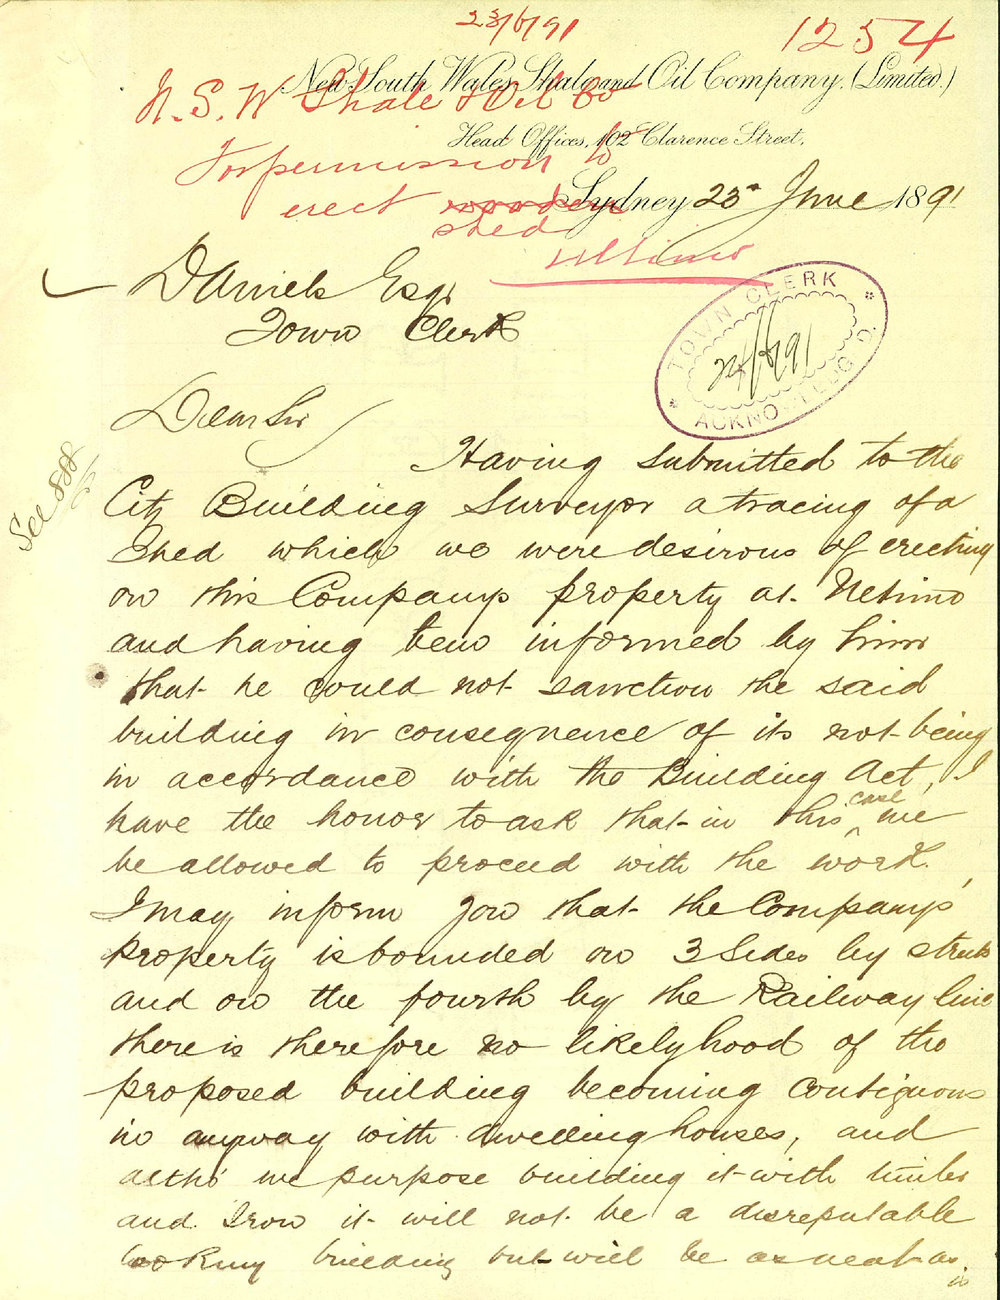 23/6/91
1254
New South Wales Shale and Oil Company. (Limited.)
N. S. W Shale & Oil Co
Head Offices, 102 Clarence Street,
For permission to
erect wooden
shed
Ultimo
Sydney 23rd June 1891
Daniels Esqr
Town Clerk
TOWN CLERK
24/6/91
ACKNOWLEDG'D.
Dear Sir
Having submitted to the
City Building Surveyor a tracing of a
Shed which we were desirous of erecting
on this Companys property at Ultimo
and having been informed by him
that he could not sanction the said
building in consequence of its not being
in accordance with the Building Act, I
have the honor to ask that in this case we
be allowed to proceed with the work.
I may inform you that the Companys
property is bounded on 3 Sides by streets
and on the fourth by the Railway line
there is therefore no likelyhood of the
proposed building becoming contiguous
in anyway with dwelling houses, and
altho' we purpose building it with timber
and Iron it will not be a disreputable
looking building but will be as neat as
is